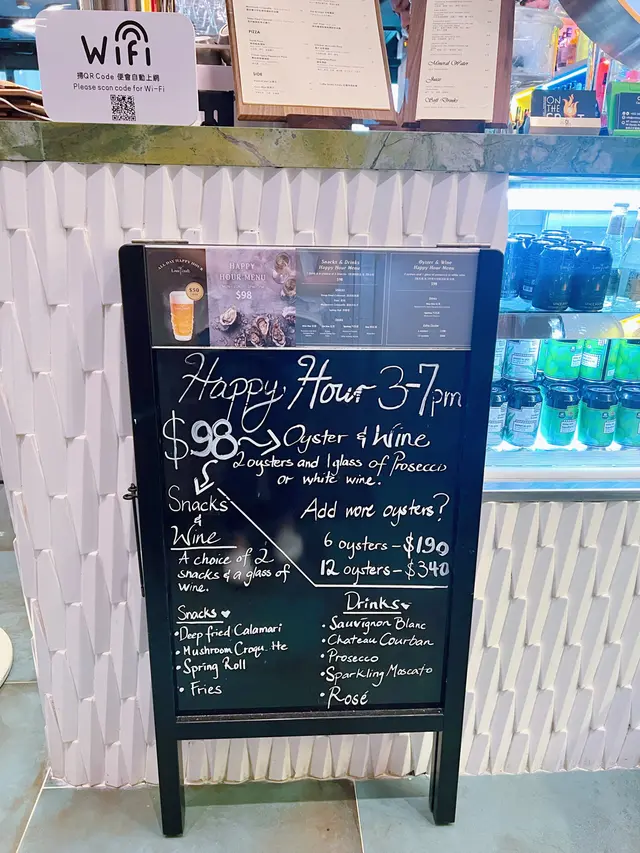 WiFi
掃QR Code 便會自動上網
Please scan code for Wi-Fi
PIZZA
SIDE
Mineral Water
Juice
Soft Drinks
ON
THE
ALL DAY HAPPY HOUR
$50
HAPPY
HOUR MENU
$98
Snacks & Drinks
Happy Hour Menu
Oyster & Wine
Happy Hour Menu
Happy Hour 3-7pm
$98 → Oyster & Wine
2 oysters and 1 glass of Prosecco
or white wine.
Snacks
&
Wine
A choice of 2
snacks & a glass of
wine.
Add more oysters?
6 oysters - $190
12 oysters - $340
Snacks ♥
• Deep fried Calamari
• Mushroom Croqu. tte
• Spring Roll
• Fries
Drinks ♥
• Sauvignon Blanc
• Chateau Courban
• Prosecco
• Sparkling Moscato
• Rosé